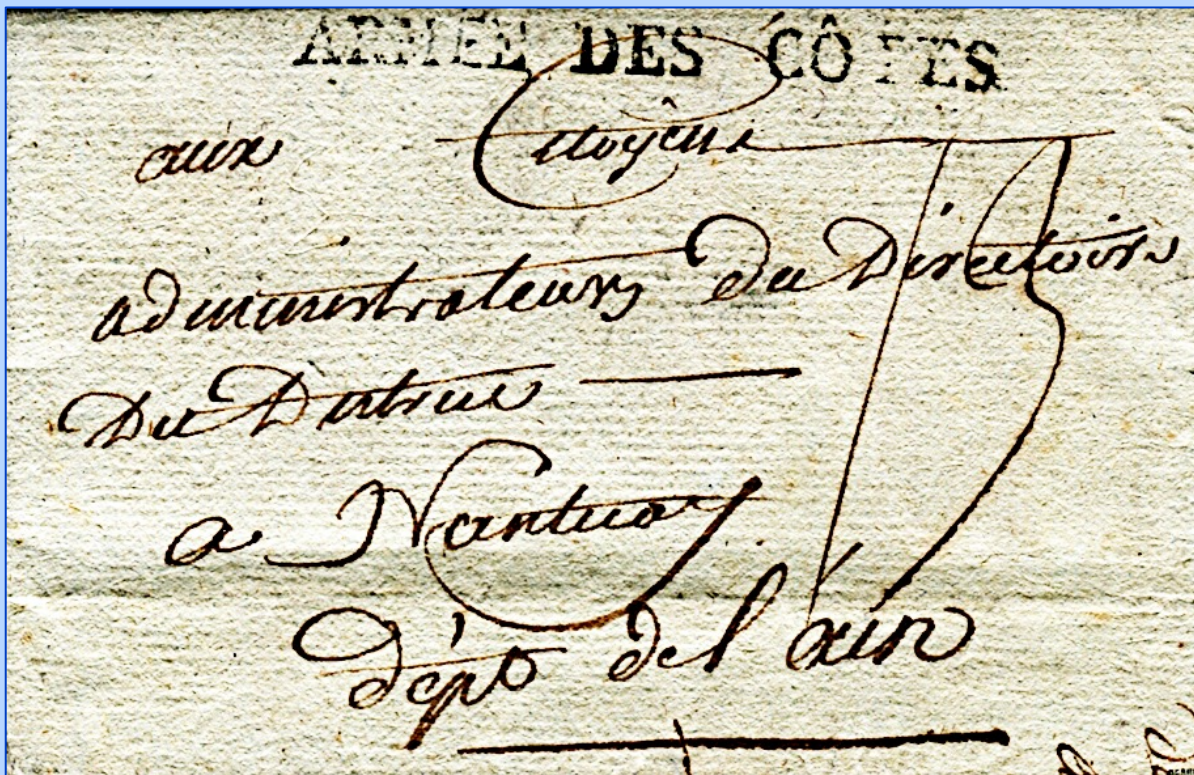 ARMÉE DES CÔTES
aux Citoyens
administrateurs du Directoire
Du District
a Nantua
dépt de l'ain